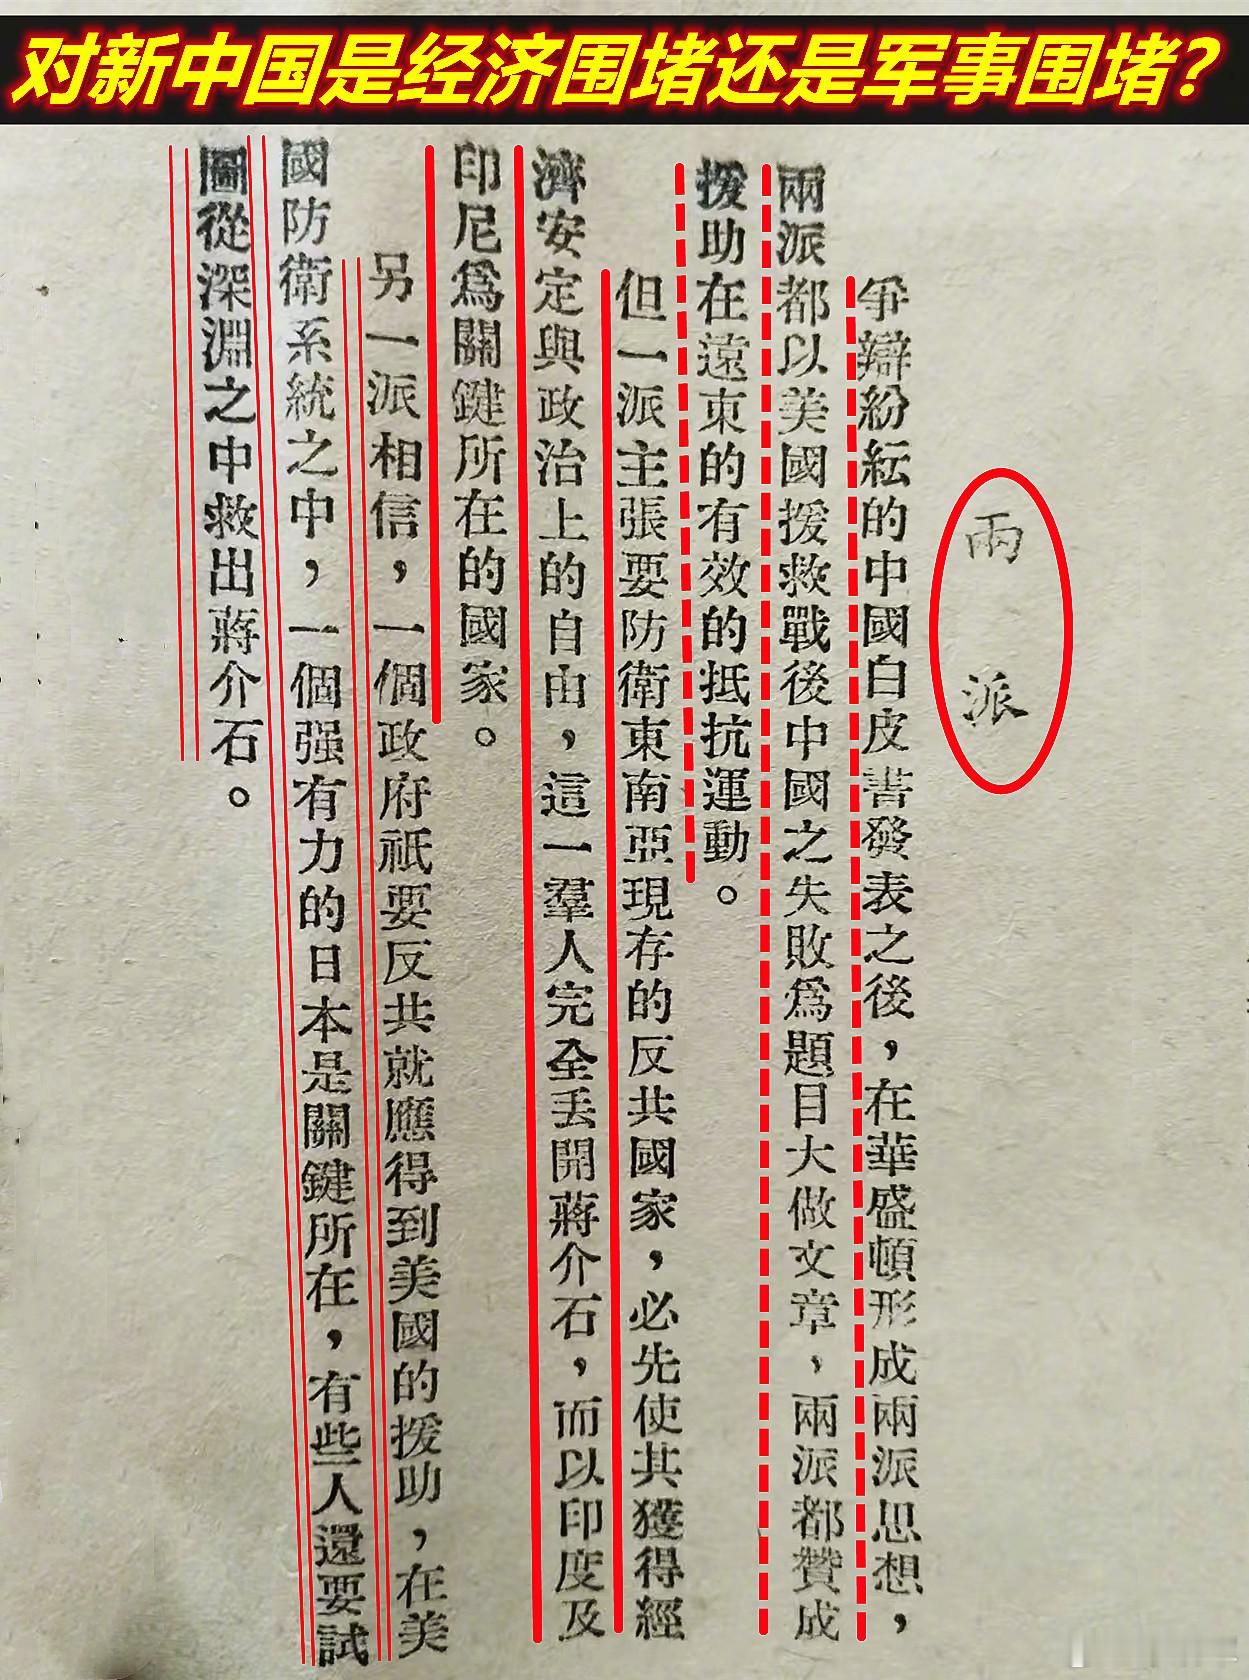 对新中国是经济围堵还是军事围堵？
兩派
爭辯紛紜的中國白皮書發表之後，在華盛頓形成兩派思想，
兩派都以美國援救戰後中國之失敗爲題目大做文章，兩派都贊成
援助在遠東的有效的抵抗運動。
但一派主張要防衛東南亞現存的反共國家，必先使其獲得經
濟安定與政治上的自由，這一羣人完全丟開蔣介石，而以印度及
印尼爲關鍵所在的國家。
另一派相信，一個政府祇要反共就應得到美國的援助，在美
國防衛系統之中，一個强有力的日本是關鍵所在，有些人還要試
圖從深淵之中救出蔣介石。